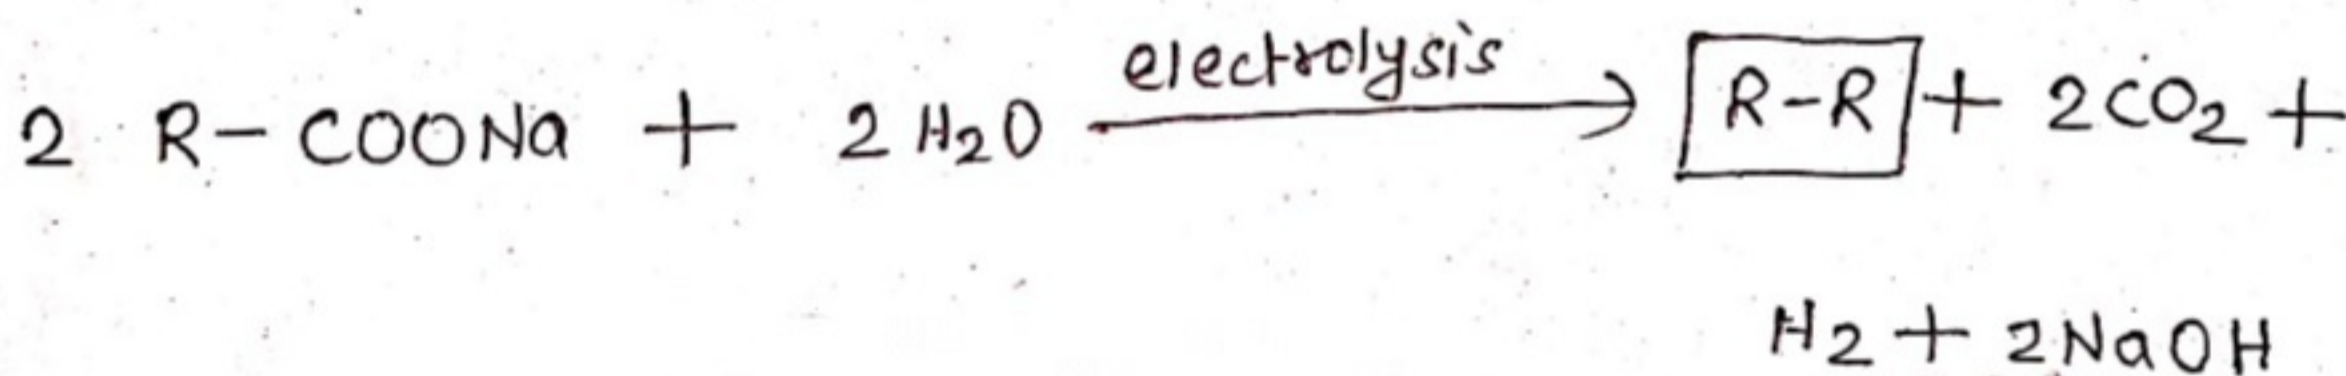 2 R-COONa + 2H₂O electrolysis→ R-R + 2CO₂ +
H₂ + 2NaOH